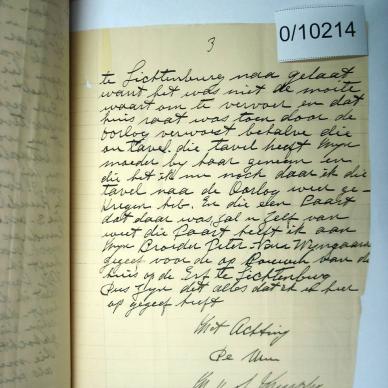 0/10214
3
te Lichtenburg naa gelaat
want het was niet de moite
waart om te vervoer en dat
huis raat was toen door de
oorlog verwoest behalve die
en tavel. die tavel heeft Myn
moeder by haar geneem en
die het ik nu noch daar ik die
tavel naa de Oorlog weer ge-
krigen heb. En die een Paart
dat daar was zal u zelf van
weet die Paart heeft ik aan
Myn Broeder Peter Van Wyngaard
gegeef voor de op Bouwen van de
huis op de Erf te Lichtenburg
Dus Zyn dit alles dat ik u hier
op gegeef heeft
Met Achting